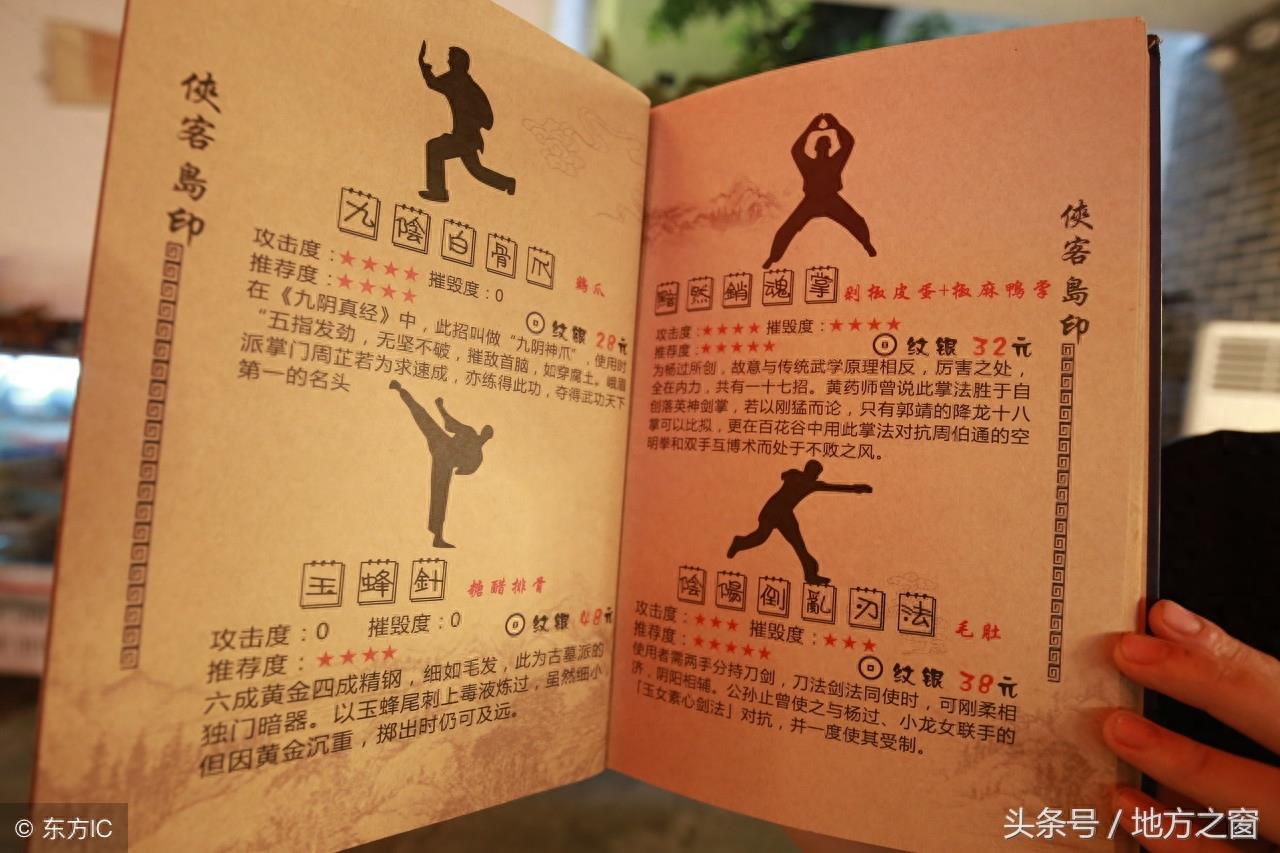 侠客島印
九陰白骨爪
鶴爪
攻击度：★★★★ 摧毁度：0
推荐度：★★★★
纹银 28元
在《九阴真经》中，此招叫做“九阴神爪”，使用时
“五指发劲，无坚不破，摧敌首脑，如穿腐土。峨眉
派掌门周芷若为求速成，亦练得此功，夺得武功天下
第一的名头
玉蜂針
糖醋排骨
攻击度：0 摧毁度：0
纹银 48元
推荐度：★★★★
六成黄金四成精钢，细如毛发，此为古墓派的
独门暗器。以玉蜂尾刺上毒液炼过，虽然细小，
但因黄金沉重，掷出时仍可及远。
黯然銷魂掌
剁椒皮蛋+椒麻鴨掌
攻击度：★★★★ 摧毁度：★★★★
推荐度：★★★★★
纹银 32元
为杨过所创，故意与传统武学原理相反，厉害之处，
全在内力，共有一十七招。黄药师曾说此掌法胜于自
创落英神剑掌，若以刚猛而论，只有郭靖的降龙十八
掌可以比拟，更在百花谷中用此掌法对抗周伯通的空
明拳和双手互博术而处于不败之风。
陰陽倒亂刃法
毛肚
攻击度：★★★ 摧毁度：★★★
推荐度：★★★★★
纹银 38元
使用者需两手分持刀剑，刀法剑法同使时，可刚柔相
济，阴阳相辅。公孙止曾使之与杨过、小龙女联手的
「玉女素心剑法」对抗，并一度使其受制。
俠客島印
© 东方IC
头条号 / 地方之窗